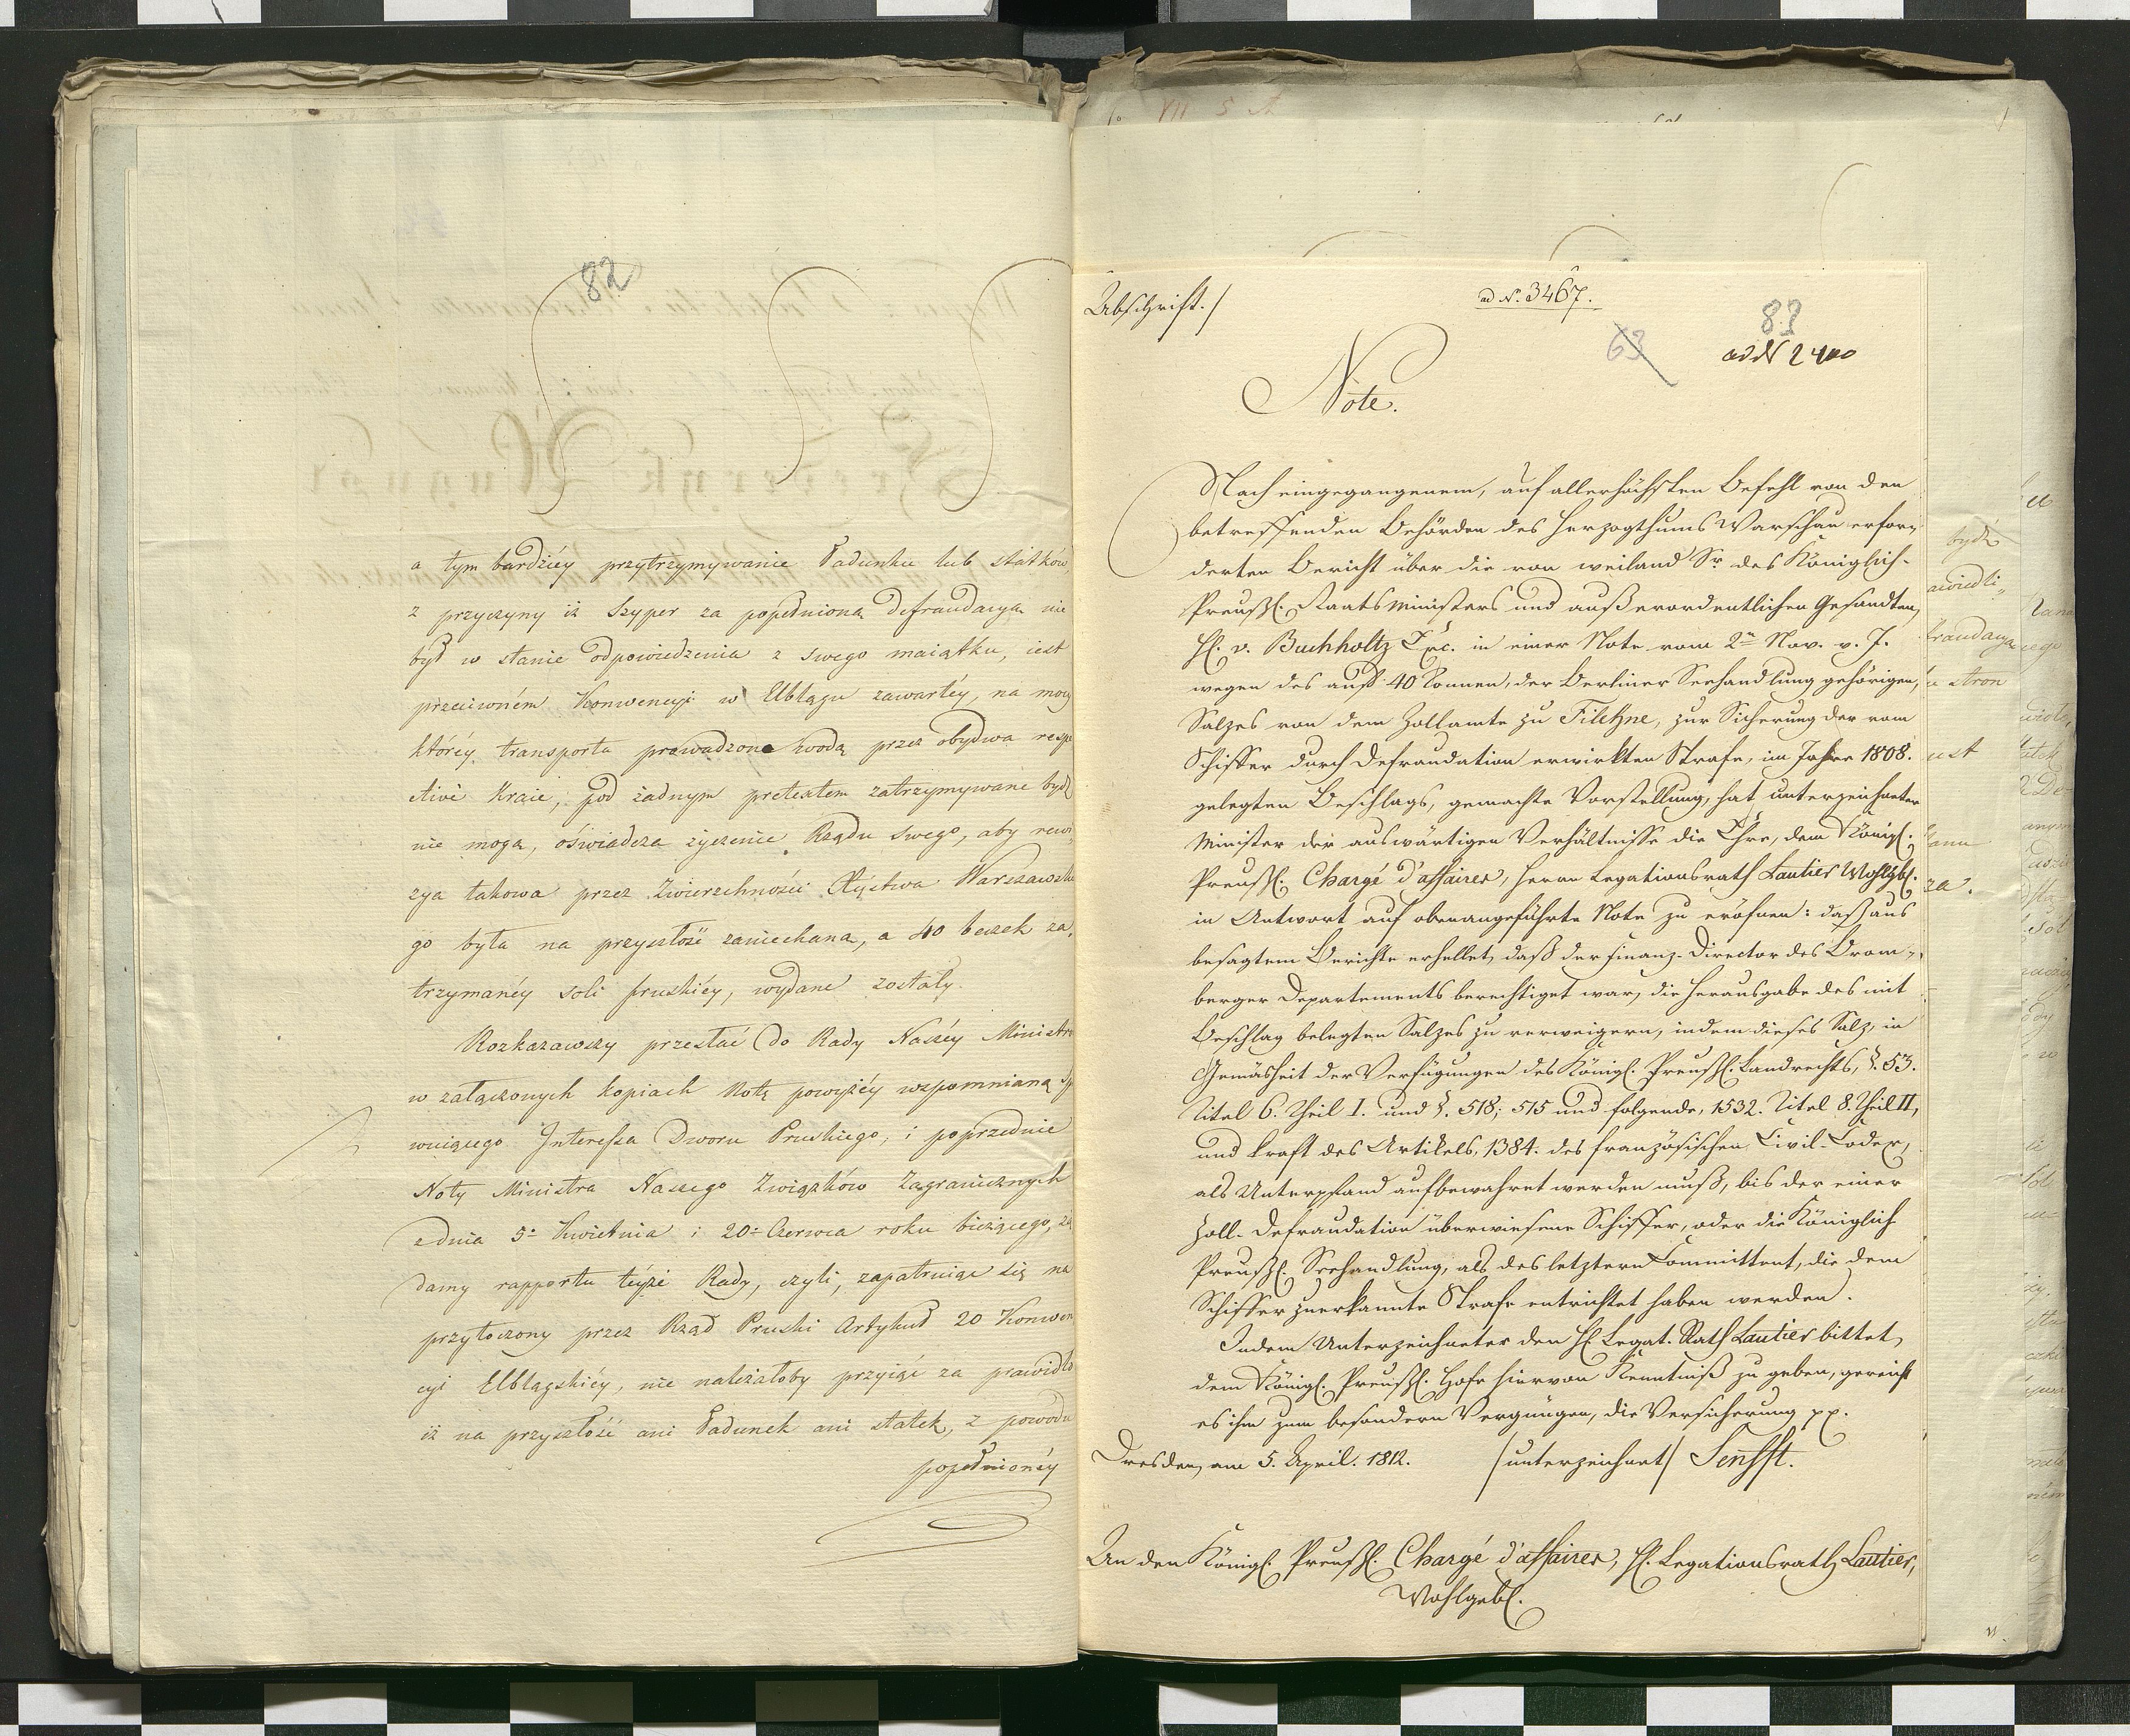 82
a tym bardziéy przytrzymywanie Ładunku lub statków,
z przyczyny iż Szyper za popełnioną defraudacyą nie
był w stanie odpowiedzenia z swego maiątku, iest
przeciwném Konwencyi w Elblągu zawartéy, na mocy
któréy transporta prowadzone wodą przez obydwa respe
ctivè Kraie, pod żadnym pretextem zatrzymywane bydź
nie mogą, oświadcza życzenie Rządu swego, aby rewi„
zya takowa przez Zwierzchności Xięstwa Warszawskie
go była na przyszłość zaniechaną, a 40 beczek za„
trzymanéy soli pruskiéy, wydane zostały.
Rozkazawszy przesłać do Rady Naszéy Ministrów
w załączonych kopiach Notę powyżéy wspomnianą Sp
wuiącego Interessa Dworu Pruskiego, i poprzednie
Noty Ministra Naszego Związków Zagranicznych
z dnia 5º Kwietnia i 20º Czerwca roku bieżącego, żą
damy rapportu teyże Rady, czyli, zapatruiąc się na
przytoczony przez Rząd Pruski Artykuł 20 Konwen
cyi Elblągskiéy, nie należałoby przyiąć za prawidło
iż na przyszłość ani Ładunek ani statek, z powodu
popełnionéy
Abschrift./
ad N. 3467.
63
83
ad N 2400
Note.
Nach eingegangenem, auf allerhöchsten Befehl von den
betreffenden Behörden des Herzogthums Warschau erfor„
derten Bericht über die von weiland Sr. des Königlich-
Preußl. Staatsministers und außerordentlichen Gesandten,
H. v. Buchholtz Exc. in einer Note vom 2n Nov. v. J.
wegen des auf 40 Tonnen, der Berliner Seehandlung gehörigen,
Salzes von dem Zollamte zu Filehne, zur Sicherung der vom
Schiffer durch Defraudation erwirkten Strafe, im Jahre 1808.
gelegten Beschlags, gemachte Vorstellung, hat unterzeichneter
Minister der auswärtigen Verhältnisse die Ehre, dem Königl.
Preußl. Chargé d'affaires, Herrn Legationsrath Lautier Wohlgbl.
in Antwort auf obenangeführte Note zu eröfnen: daß aus
besagtem Berichte erhellet, daß der Finanz-Director des Brom„
berger Departements berechtiget war, die Herausgabe des mit
Beschlag belegten Salzes zu verweigern, indem dieses Salz, in
Gemäsheit der Verfügungen des Königl. Preußl. Landrechts, §. 53.
Titel 6. Theil I. und §. 518; 515 und folgende, 1532. Titel 8. Theil II,
und kraft des Artikels, 1384. des französischen Civil-Codex,
als Unterpfand aufbewahret werden muß, bis der einer
Zoll-Defraudation überwiesene Schiffer, oder die Königlich
Preußl. Seehandlung, als des letztern Committent, die dem
Schiffer zuerkannte Strafe entrichtet haben werden.
Indem Unterzeichneter den H. Legat. Rath Lautier bittet,
dem Königl. Preußl. Hofe hiervon Kenntniß zu geben, gereicht
es ihm zum besondern Vergnügen, die Versicherung pp.
Dresden, am 5. April. 1812. /unterzeichnet/ Senfft.
An den Königl. Preußl. Chargé d'affaires, H. Legationsrath Lautier,
Wohlgebl.